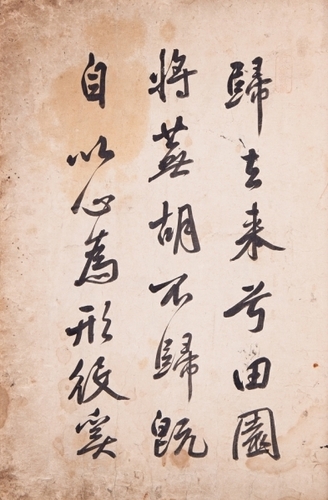 歸去来兮田園
將蕪胡不歸既
自以心為形役奚